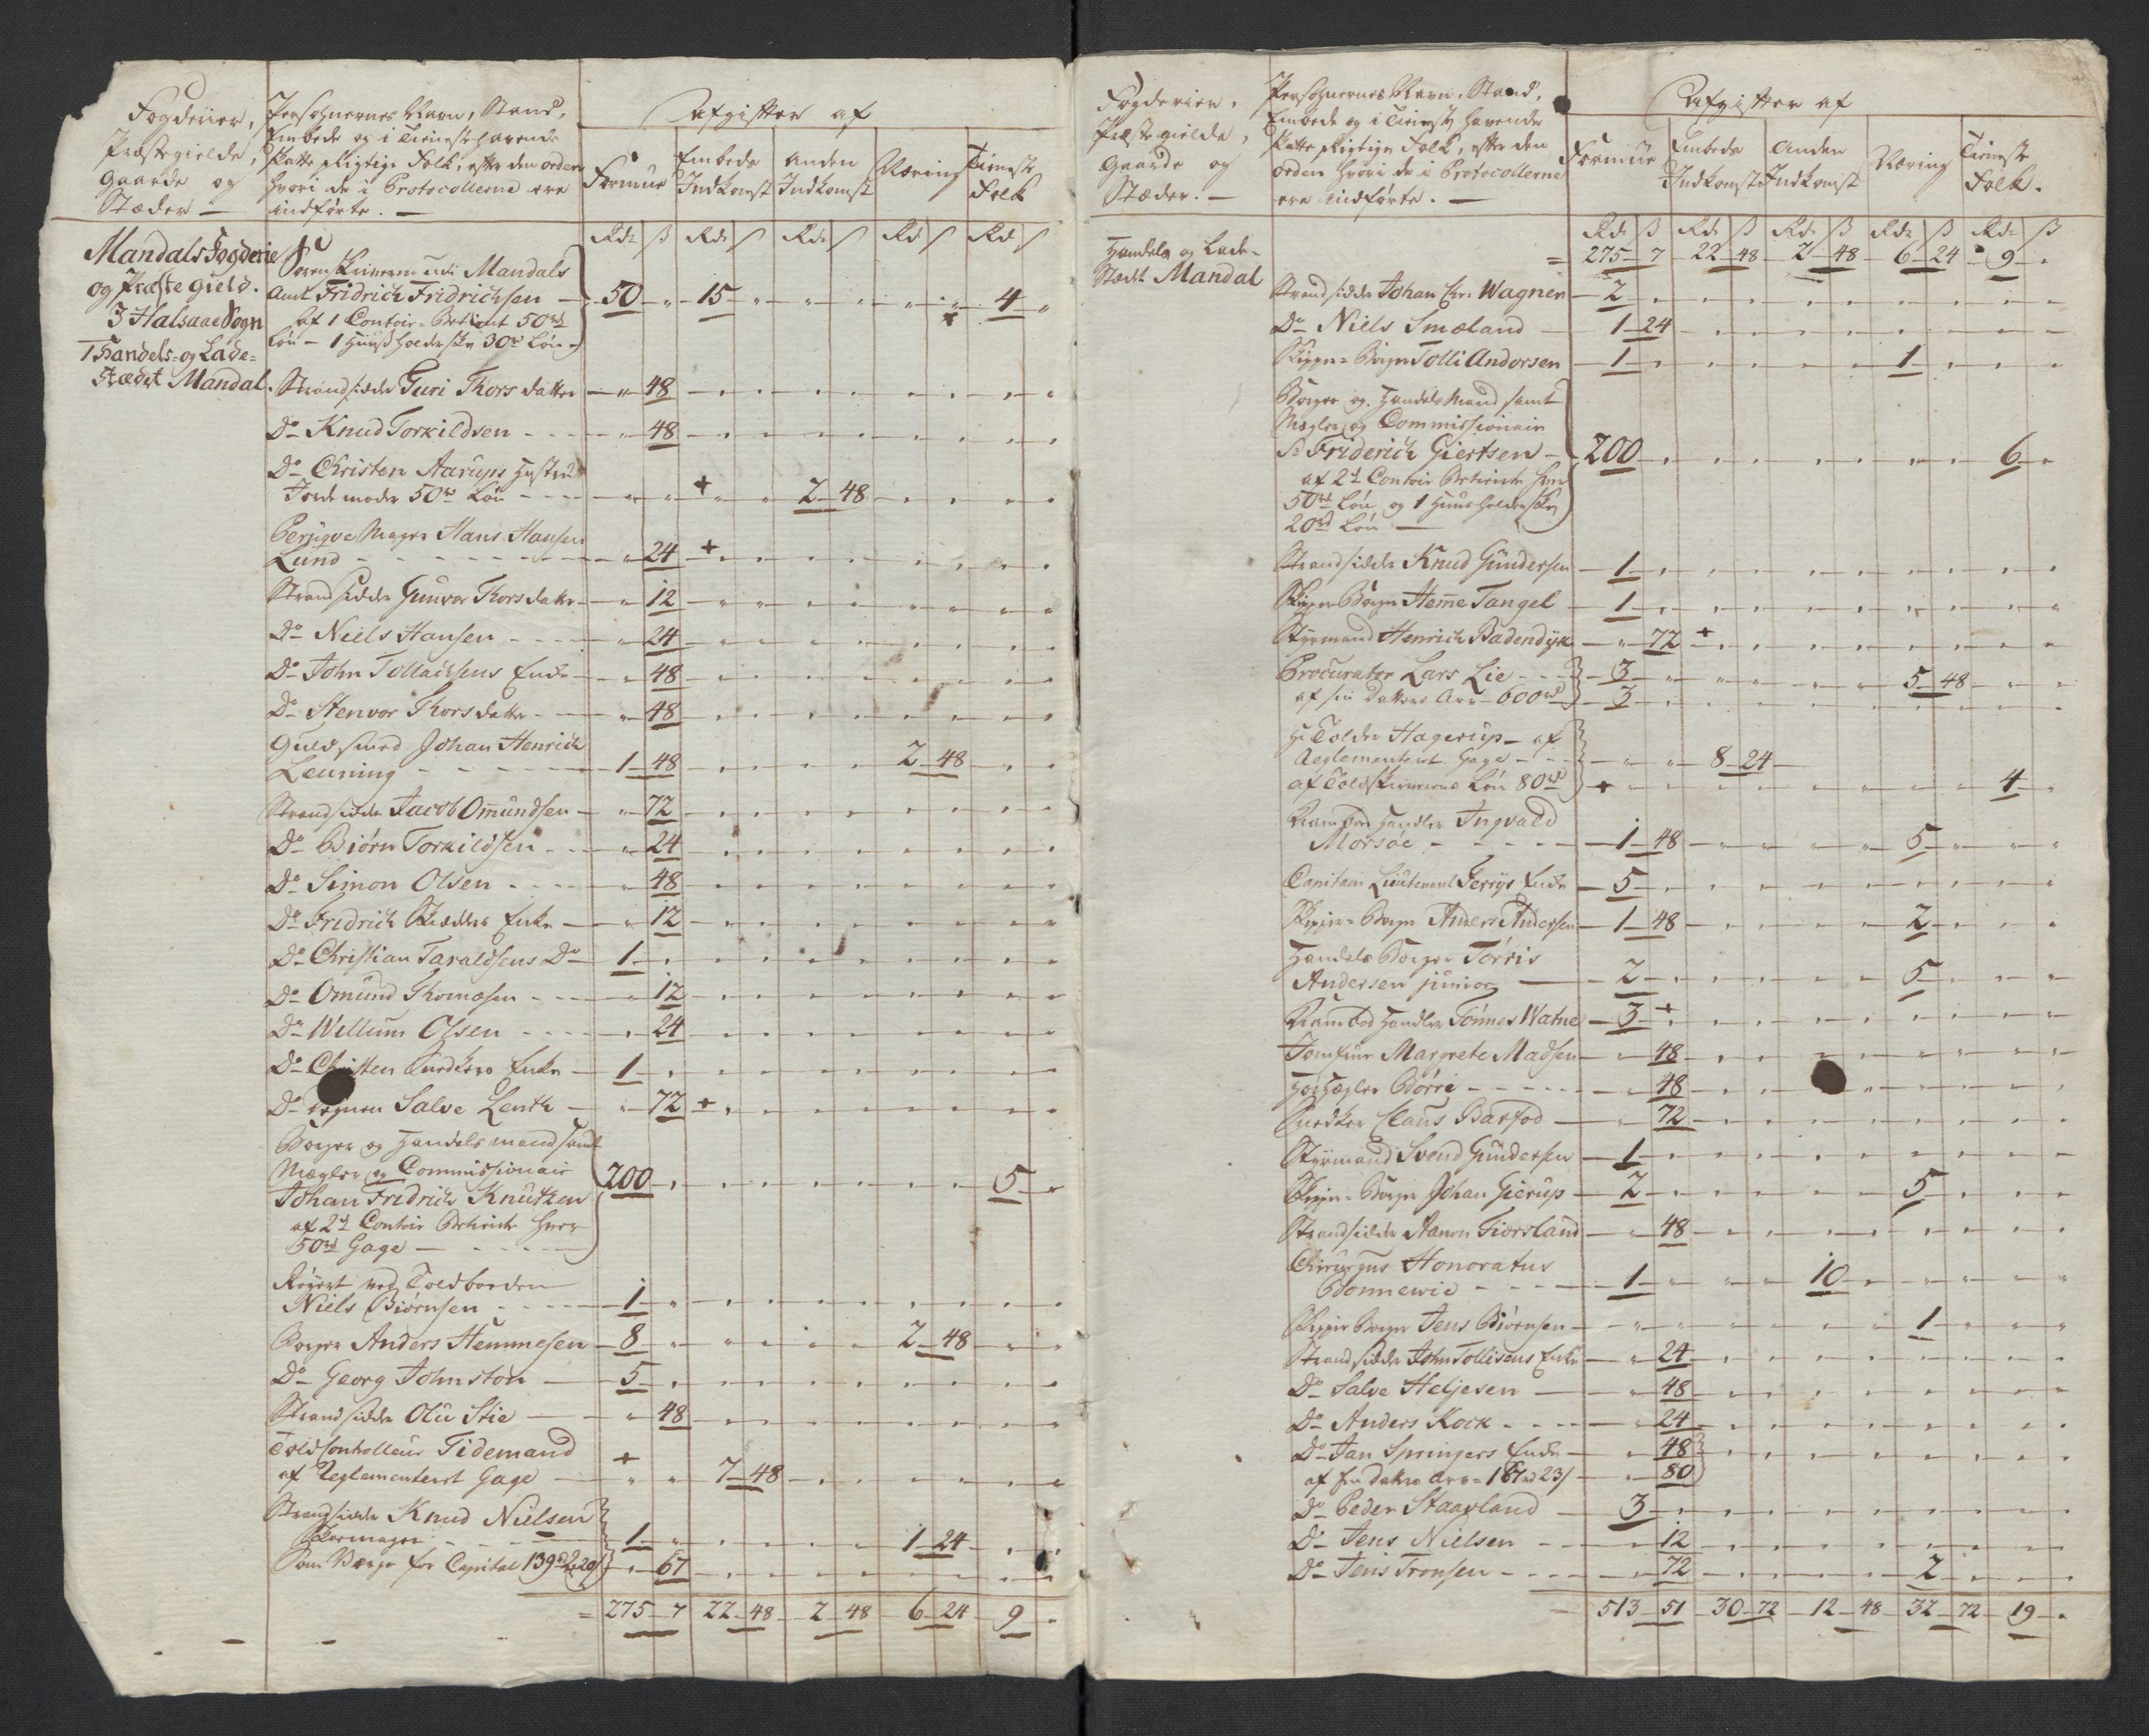 Fogderier,
Præstegielde,
Gaarde og
Stæder —
Persohnernes Navn, Stand,
Embede og i Tieneste havende
skattepligtige Folk, efter den orden
hvori de i Protocollerne ere
indførte. —
Afgifter af
Formue
Embeds Indkomst
Anden Indkomst
Næring
Tieneste Folk
Rdr ß Rdr ß Rdr ß Rd ß Rd ß
Mandals Fogderie
og Præste gield.
I Halsaae Sogn
I Handels- og Lade-
Stædet Mandal.
Sorenskriveren udi Mandals
Amt Fridrich Fridrichsen — 50 " 15 " " " " " 4 "
af 1 Contoir-Betient 50rd
Løn — 1 Huusholderske 30rd Løn
Strandsidder Guri Thorsdatter — " 48
Do Knud Torkildsen - - - " 48
Do Christen Aarups Hustrue
Jordemoder 50rd Løn - - - + 2 — 48
Perüqve Mager Hans Hansen
Lund - - - " 24 +
Strandsidder Gunvor Thorsdatter — " 12
Do Niels Hansen - - - " 24
Do John Tollachsens Enke — " 48
Do Stenvor Thorsdatter — " 48
Guldsmed Johan Henrich
Leuning - - - 1 — 48 2 — 48
Strandsidder Jacob Omundsen — " 72
Do Biørn Torkildsen - - " 24
Do Simon Olsen - - - " 48
Do Fridrich Enke — " 12
Do Christian Taraldsens Do — 1
Do Omund Thomasen - - " 12
Do Willum Olsen - - - " 24
Do Christen Snedkers Enke — 1
Do Salve Lenth — " 72 +
Borger og Handelsmand samt
Mægler og Commissionair
Johan Fridrich Knutzen 200 5
af 2de Contoir Betiente hver
50rd Gage —
Røgert ved Toldboden
Niels Biørnsen - - - 1
Borger Anders Hemmesen — 8 2 — 48
Do Georg Johnston — 5
Strandsidder Olu Stie — " 48
Toldcontrolleur Tidemand +
af Reglementeret Gage — " " 7 — 48
Strandsidder Knud Nielsen
Skoemager - - - 1 1 — 24
Som Værge for Capital 139rd 2 " 67
= 275 — 7 22 — 48 2 — 48 6 — 24 9 —
Fogderier,
Præstegielde,
Gaarde og
Stæder. —
Persohnernes Navn, Stand,
Embede og i Tieneste havende
skattepligtige Folk, efter den
orden hvori de i Protocollerne
ere indførte. —
Afgifter af
Formue
Embeds Indkomst
Anden Indkomst
Næring
Tieneste Folk.
Rdr ß Rdr ß Rdr ß Rdr ß Rd ß
= 275 — 7 22 — 48 2 — 48 6 — 24 9 —
Handels og Lade-
Stædt Mandal
Strandsidder Johan Chr. Wagner — 2
Do Niels Smæland — 1 — 24
Skipper-Borger Tolli Andorsen — 1 1
Borger og Handelsmand samt
Mægler og Commissionair
Sr Friderich Giertsen — 200 6
af 2de Contoir Betiente hver
50rd Løn og 1 Huusholderske
20rd Løn —
Strandsidder Knud Gundersen — 1
Skipper Borger Hemme Tangel — 1
Styrmand Henrich Badendyk — " 72 +
Procurator Lars Lie - - - 3 5 — 48
af sin Datters Arv 600rd — 3
Hr Tolder Hagerup — af
Reglementeret Gage - - - " " 8 — 24
af Toldskriverens Løn 80rd + 4
Kramboe Handler Ingvald
Morsøe - - - 1 — 48 5
Capitain Lieutenant Jerrys Enke — 5
Skipper-Borger Anders Andersen — 1 — 48 2
Handels Borger Tørris
Andersen junior — 2 5
Kramboe Handler Tønnes Watne — 3 +
Jomfrue Margrete Madsen — " 48
Børre - - - " 48
Snedker Claus Barfod — " 72
Styrmand Svend Gundersen — 1
Skipper-Borger Johan Gierup — 2 5
Strandsidder Aanon Fiorsland — " 48
Chirurgus Honoratus
Bonnewie - - - 1 10
Skipper Borger Jens Biørnsen — 1
Strandsidder John Tollisens Enke — " 24
Do Salve Heljesen — " 48
Do Anders Kock - - - " 24
Do Jan Springers Enke — " 48
af sin Datters Arv = 167rd 23ß — " 80
Do Peder Staarland — 3
Do Jens Nielsen - - " 12
Do Jens Tronsen - - - " 72 2
= 513 — 51 30 — 72 12 — 48 32 — 72 19 —